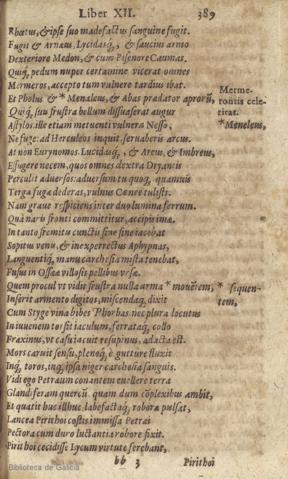 Liber XII. 389
Rhœtus, & ipse suo madefactus sanguine fugit.
Fugit & Arnæus, Lycidasq́;, & saucius armo
Dexteriore Medon, & cum Pisenore Caumas.
Quíq́; pedum nuper certamine vicerat omnes
Mermeros, accepto tum vulnere tardius ibat.
Et Pholus & * Menaleus, & Abas prædator aprorũ,
Mermerontis celeritas.
Quíq́; suis frustra bellum dissuaserat augur
* Meneleus,
Astylos. ille etiam metuenti vulnera Nesso,
Ne fuge: ad Herculeos inquit seruaberis arcus.
At non Eurynomus Lycidasq́;, & Areos, & Imbreus,
Effugere necem, quos omnes dextra Dryantis
Perculit aduersos: aduersum tu quoq́, quamuis
Terga fugæ dederas, vulnus Cænee tulisti.
Nam graue respiciens inter duo lumina ferrum.
Quà naris fronti committitur, accipis imæ.
In tanto fremitu cunctis sine fine iacebat
Sopitus venu, & inexperrectus Aphypnas,
Languentiq́; manu carchesia mista tenebat,
Fusus in Ossææ villosis pellibus vrsæ.
Quem procul vt vidit frustra nulla arma * mouẽtem,
* sequentem,
Inserit armento digitos, miscendaq́; dixit
Cum Styge vina bibes Phorbas: nec plura locutus
In iuuenem torsit iaculum, ferrataq́; collo
Fraxinus, vt casu iacuit resupinus, adacta est.
Mors caruit sensu, plenoq́; è gutture fluxit
Inq́; toros, inq́; ipsa niger carchesia sanguis.
Vidi ego Petræum conantem euellere terra
Glandiferam quercũ. quam dum cõplexibus ambit,
Et quatit huc illhuc. labefactaq́; robora pulsat,
Lancea Pirithoi costis immissa Petræi
Pectora cum duro luctantia robore fixit.
Pirithoi cecidisse Lycum virtute ferebant,
bb 3 Pirithoi
Biblioteca de Galicia